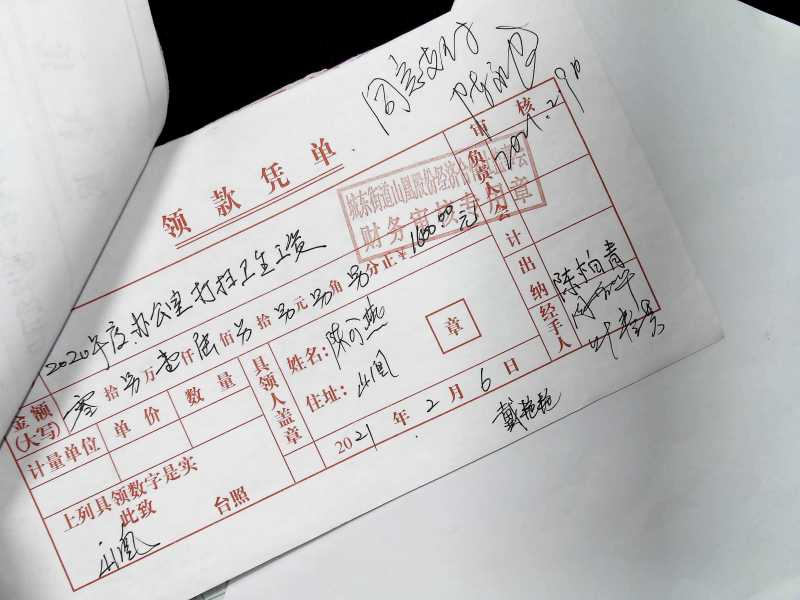 同意支付
2021.2.9日
领款凭单
审核
城东街道山凰股份经济合作社
财务审核专用章
负责人
2020年度办公室打扫卫生工资
会计
金额(大写) 零拾另万壹仟陆佰另拾另元另角另分正¥1600.00元
出纳 陈柏青
计量单位 单价 数量
具领人盖章
姓名: 陈可燕
住址: 山凰
章
经手人
2021年2月6日
戴艳艳
上列具领数字是实
此致
台照
山凰